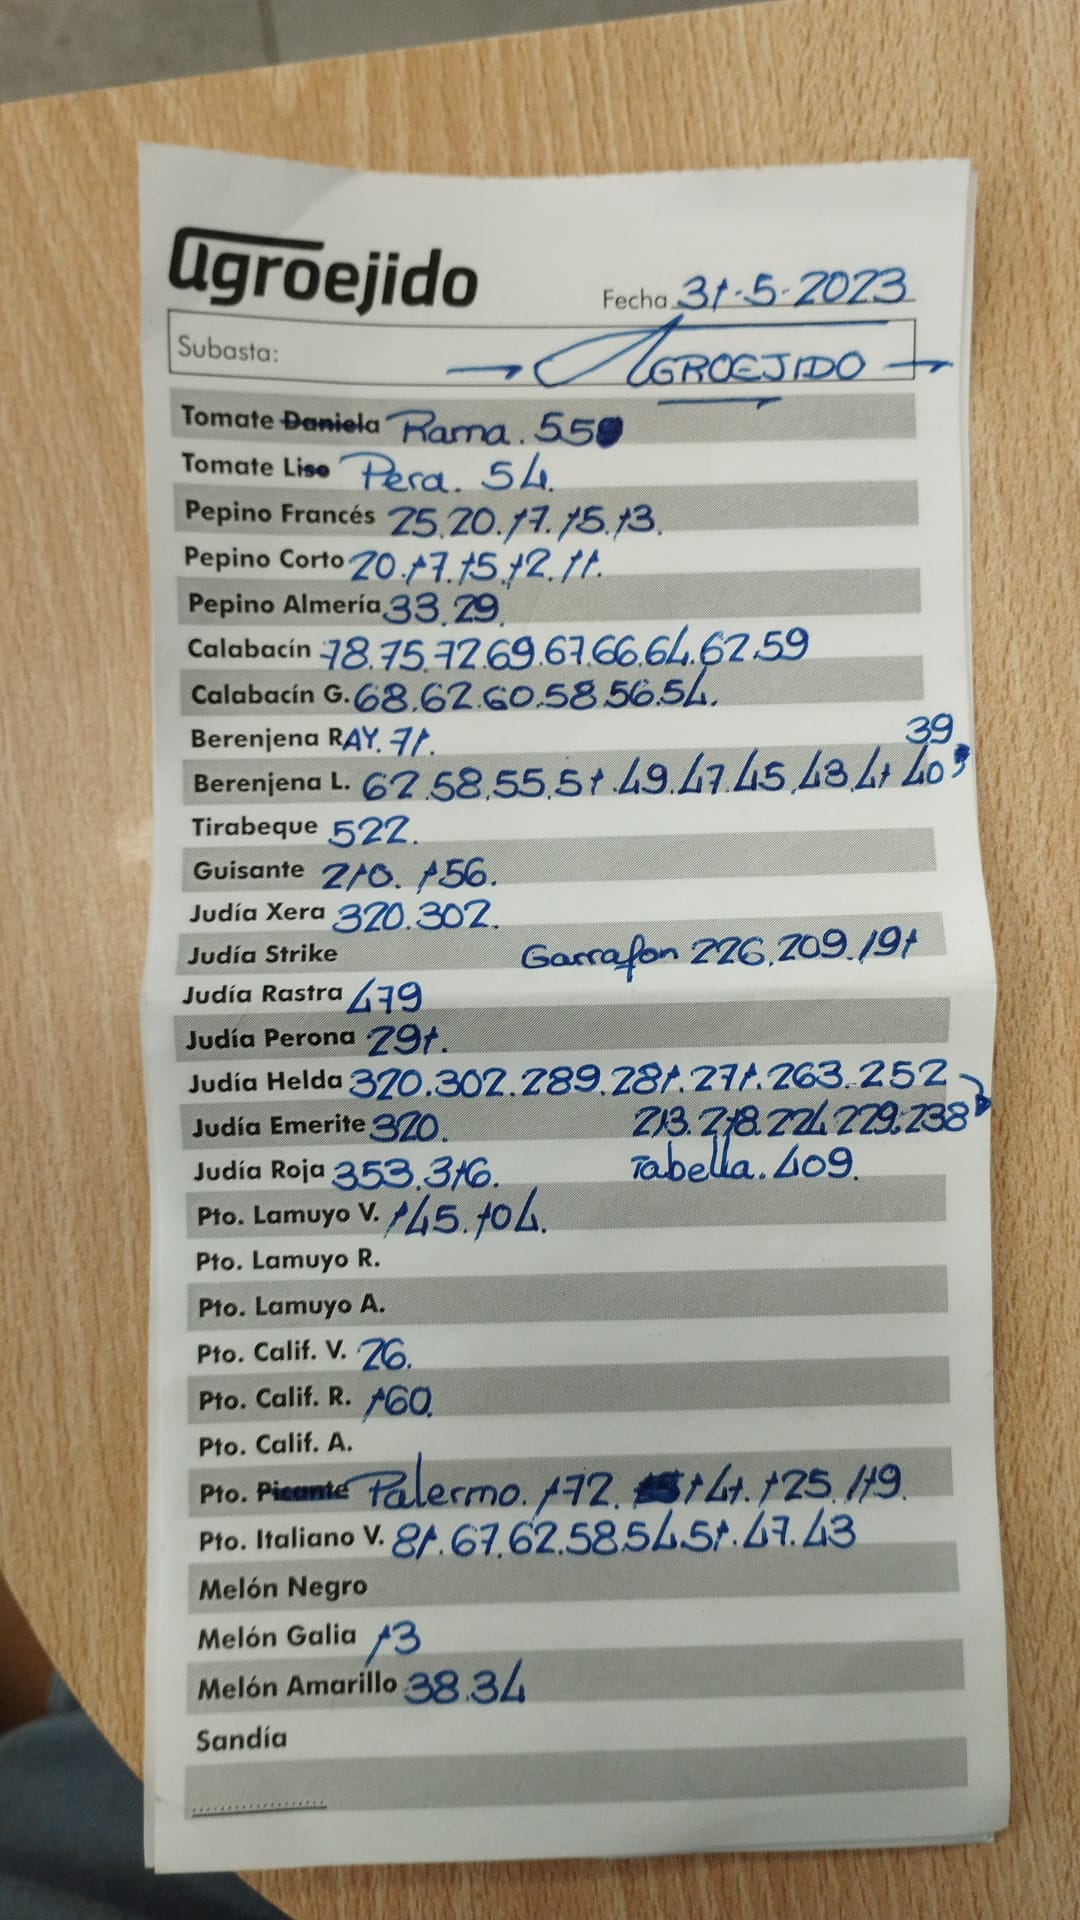 agroejido
Fecha 31-5-2023
Subasta: → AGROEJIDO →
Tomate Daniela Rama. 55
Tomate Liso Pera. 54.
Pepino Francés 25.20.17.15.13.
Pepino Corto 20.17.15.12.11.
Pepino Almería 33.29.
Calabacín 78.75.72.69.67.66.64.62.59
Calabacín G. 68.62.60.58.56.54.
Berenjena RAY. 71.
39
Berenjena L. 62.58.55.51.49.47.45.43.41 40,
Tirabeque 522.
Guisante 210. 156.
Judía Xera 320.302.
Judía Strike Garrafon 226.209.191
Judía Rastra 479
Judía Perona 291.
Judía Helda 320.302.289.281.271.263.252
Judía Emerite 320. 213.218.224.229.238
Judía Roja 353.316. Tabella. 409.
Pto. Lamuyo V. 145.104.
Pto. Lamuyo R.
Pto. Lamuyo A.
Pto. Calif. V. 26.
Pto. Calif. R. 160.
Pto. Calif. A.
Pto. Picante Palermo. 172. 141. 125. 119.
Pto. Italiano V. 81.67.62.58.54.51.47.43
Melón Negro
Melón Galia 13
Melón Amarillo 38.34
Sandía